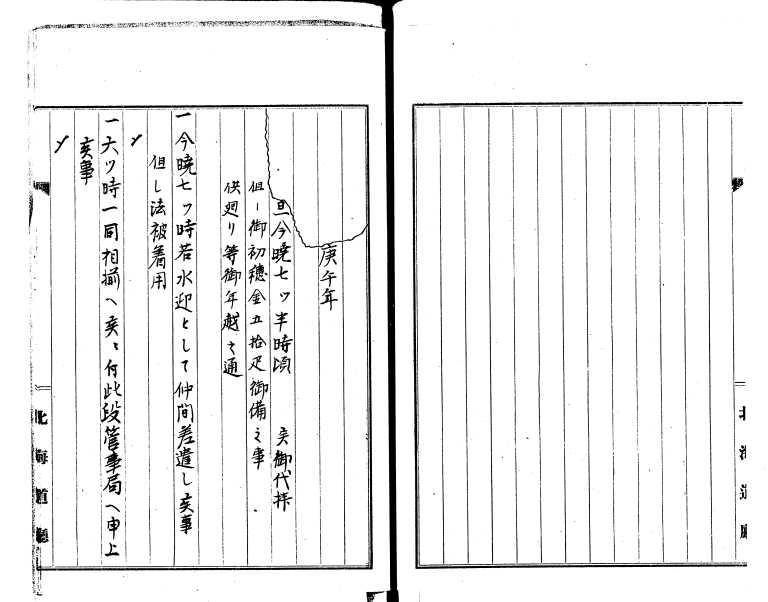 庚午年
旦今曉七ツ半時頃 亥御代拝
但し御初穂金五拾疋御備之事
供廻り等御年越之通
一今曉七ツ時若水迎として仲間差遣し亥事
但し法被着用
一六ツ時一同相揃へ亥ニ付此段管事局へ申上
亥事
北海道廳
北海道廳